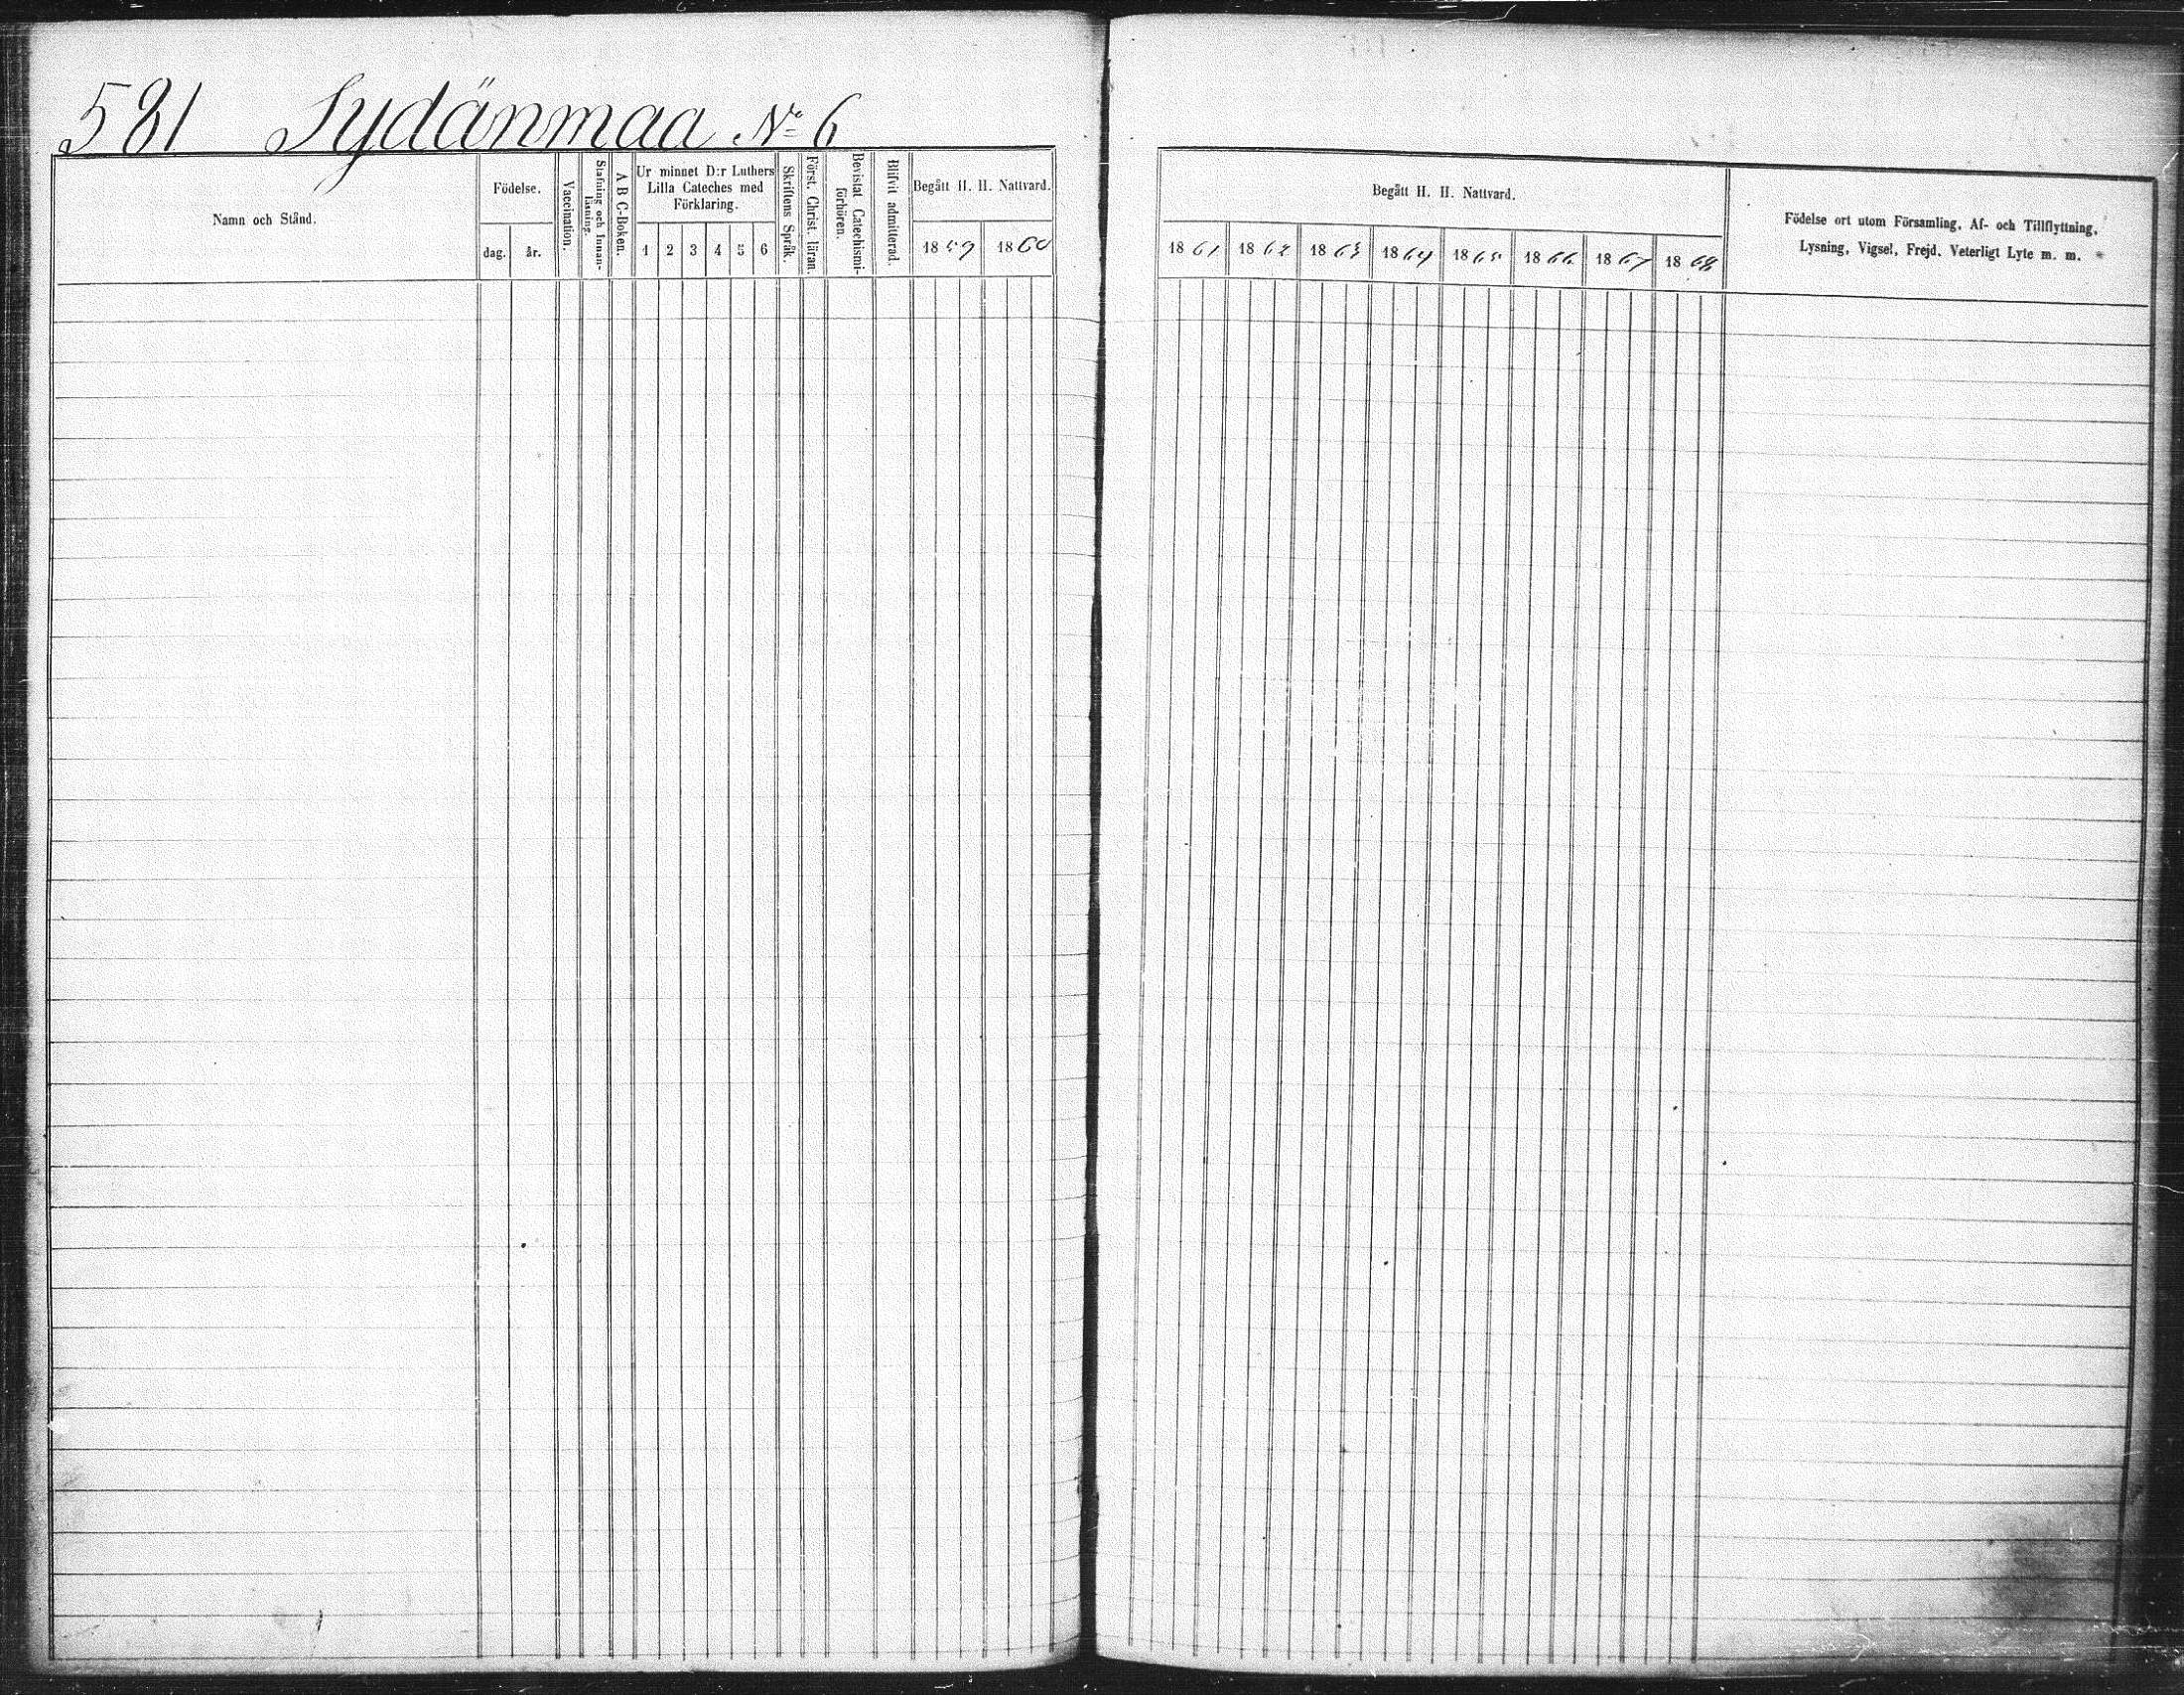 581 Sydänmaa No 6
Namn och Stånd.
Födelse.
dag. år.
Vaccination.
Stafning och Innan-
läsning.
A B C-Boken.
Ur minnet D:r Luthers
Lilla Cateches med
Förklaring.
1 2 3 4 5 6
Skriftens Språk.
Först. Christ. läran.
Bevistat Catechismi-
förhören.
Blifvit admitterad.
Begått H. H. Nattvard.
1859 1860
Begått H. H. Nattvard.
1861 1862 1863 1864 1865 1866 1867 1868
Födelse ort utom Församling, Af- och Tillflyttning,
Lysning, Vigsel, Frejd, Veterligt Lyte m. m.